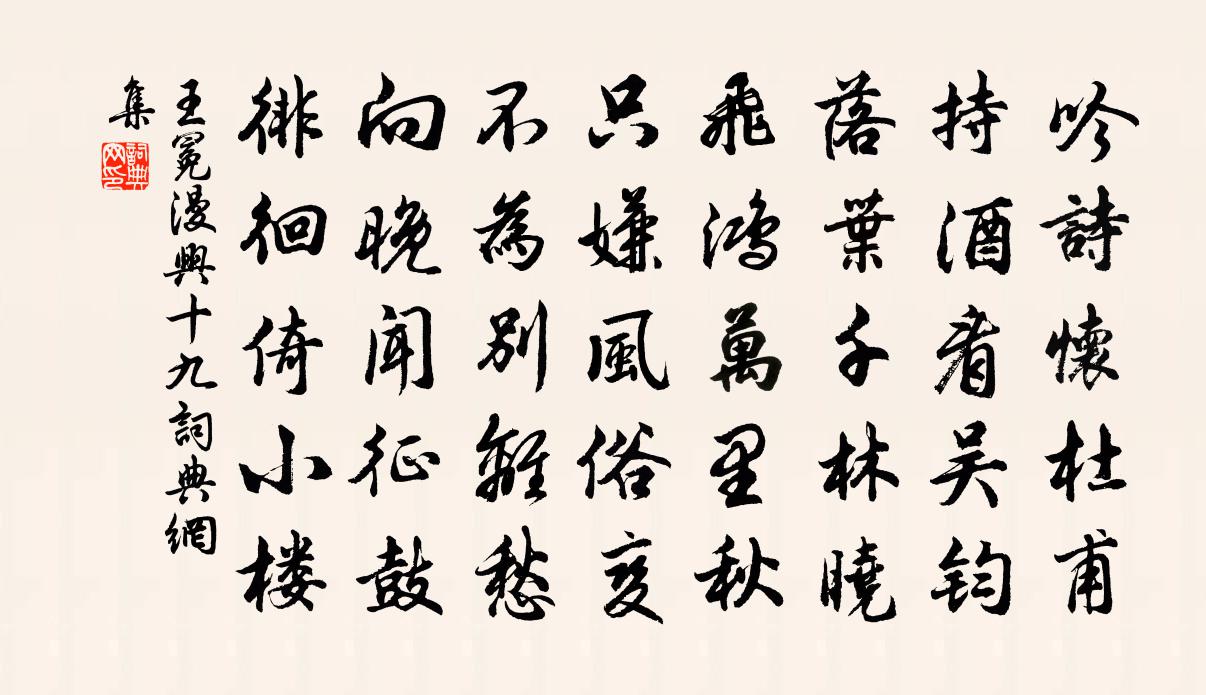 吟詩懷杜甫
持酒看吴鈎
落葉千林曉
飛鴻萬里秋
只嫌風俗变
不為別離愁
向晚聞征鼓
徘徊倚小楼
王冕漫興十九詞典網
集
詞典網印